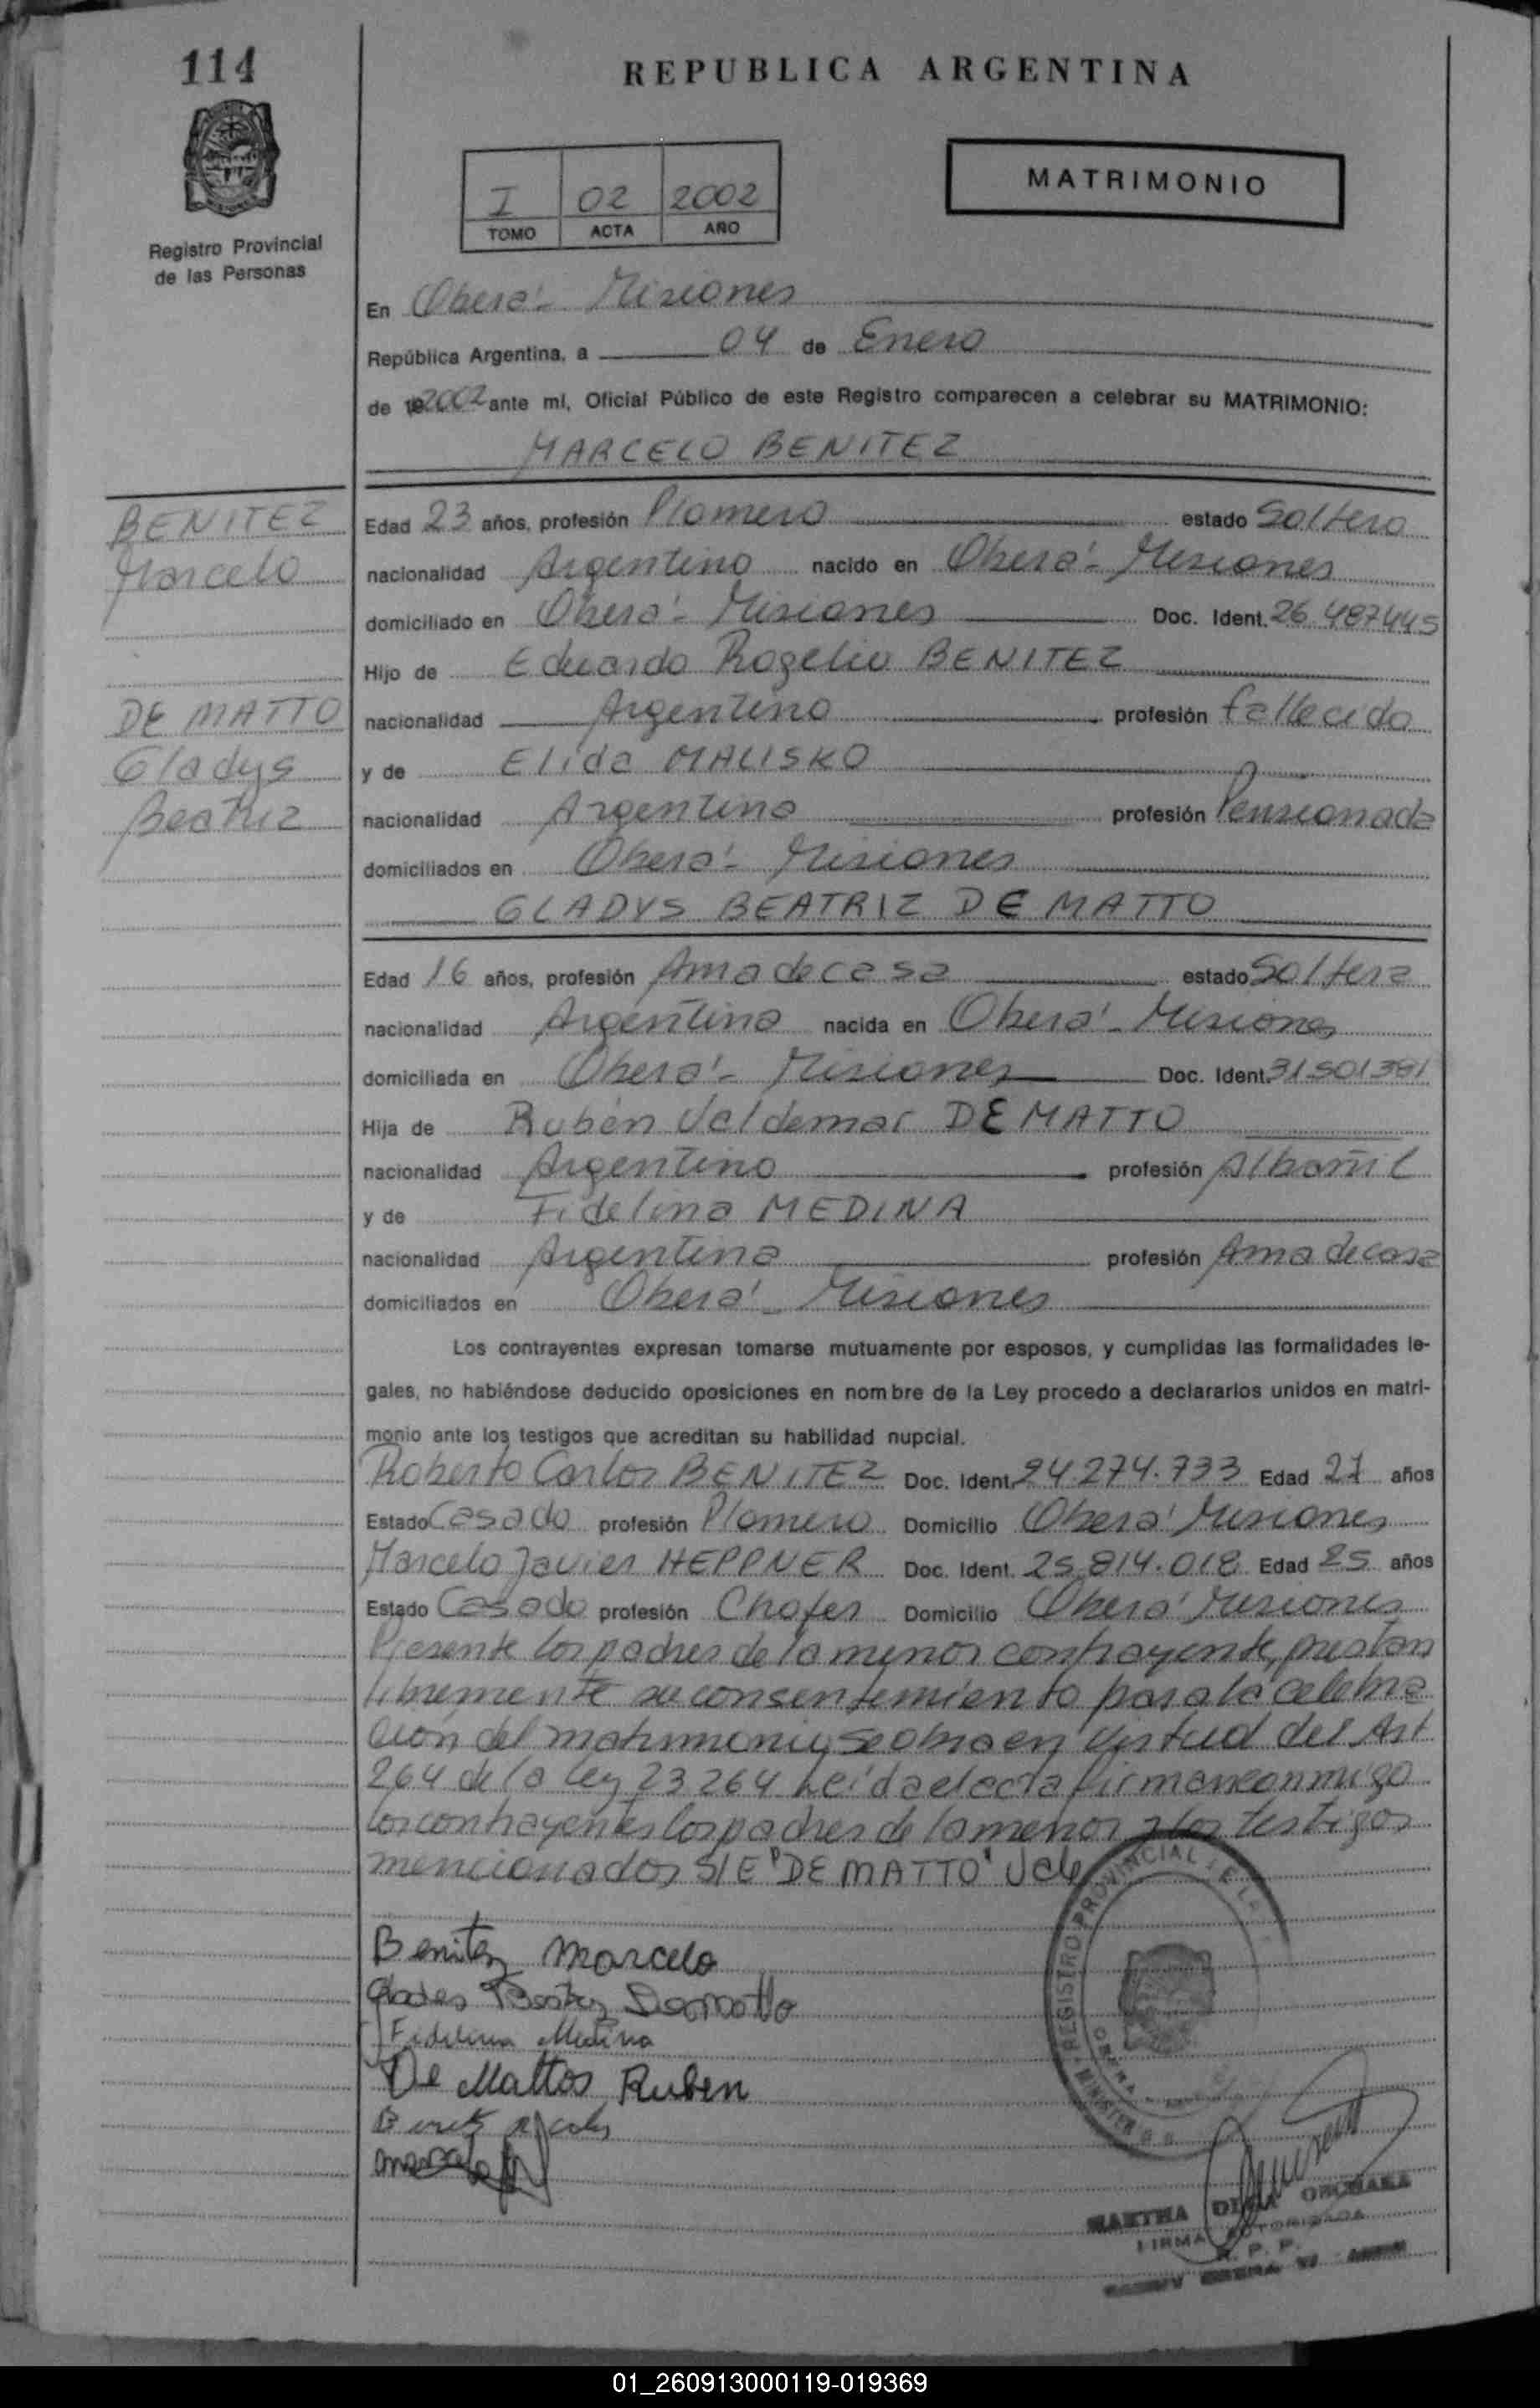 114
REPUBLICA ARGENTINA
Registro Provincial
de las Personas
I 02 2002
TOMO ACTA AÑO
MATRIMONIO
En Oberá - Misiones
República Argentina, a 04 de Enero
de 192002 ante mí, Oficial Público de este Registro comparecen a celebrar su MATRIMONIO:
MARCELO BENITEZ
BENITEZ
Marcelo
DE MATTO
Gladys
Beatriz
Edad 23 años, profesión Plomero estado Soltero
nacionalidad Argentino nacido en Oberá - Misiones
domiciliado en Oberá - Misiones Doc. Ident. 26 487445
Hijo de Eduardo Rogelio BENITEZ
nacionalidad Argentino profesión fallecido
y de Elida MALISKO
nacionalidad Argentina profesión Pensionada
domiciliados en Oberá - Misiones
GLADYS BEATRIZ DE MATTO
Edad 16 años, profesión Ama de casa estado Soltera
nacionalidad Argentina nacida en Oberá - Misiones
domiciliada en Oberá - Misiones Doc. Ident. 31501391
Hija de Rubén Valdemar DE MATTO
nacionalidad Argentino profesión Albañil
y de Fidelina MEDINA
nacionalidad Argentina profesión Ama de casa
domiciliados en Oberá - Misiones
Los contrayentes expresan tomarse mutuamente por esposos, y cumplidas las formalidades le-
gales, no habiéndose deducido oposiciones en nombre de la Ley procedo a declararlos unidos en matri-
monio ante los testigos que acreditan su habilidad nupcial.
Roberto Carlos BENITEZ Doc. Ident. 24.274.733 Edad 27 años
Estado Casado profesión Plomero Domicilio Oberá Misiones
Marcelo Javier HEPPNER Doc. Ident. 25.814.018 Edad 25 años
Estado Casado profesión Chofer Domicilio Oberá Misiones
Presente los padres de la menor contrayente, prestan
libremente su consentimiento para la celebra
ción del matrimonio, se obra en virtud del Art
264 de la ley 23264 Leída el acta firman conmigo
los contrayentes los padres de la menor y los testigos
mencionados S/E "DE MATTO" Vale
Benitez Marcelo
Beatriz Dematto
Fidelina Medina
De Mattos Ruben
REGISTRO PROVINCIAL DE LA
MARTHA
FIRMA AUTORIZADA
R. P. P.
01_260913000119-019369